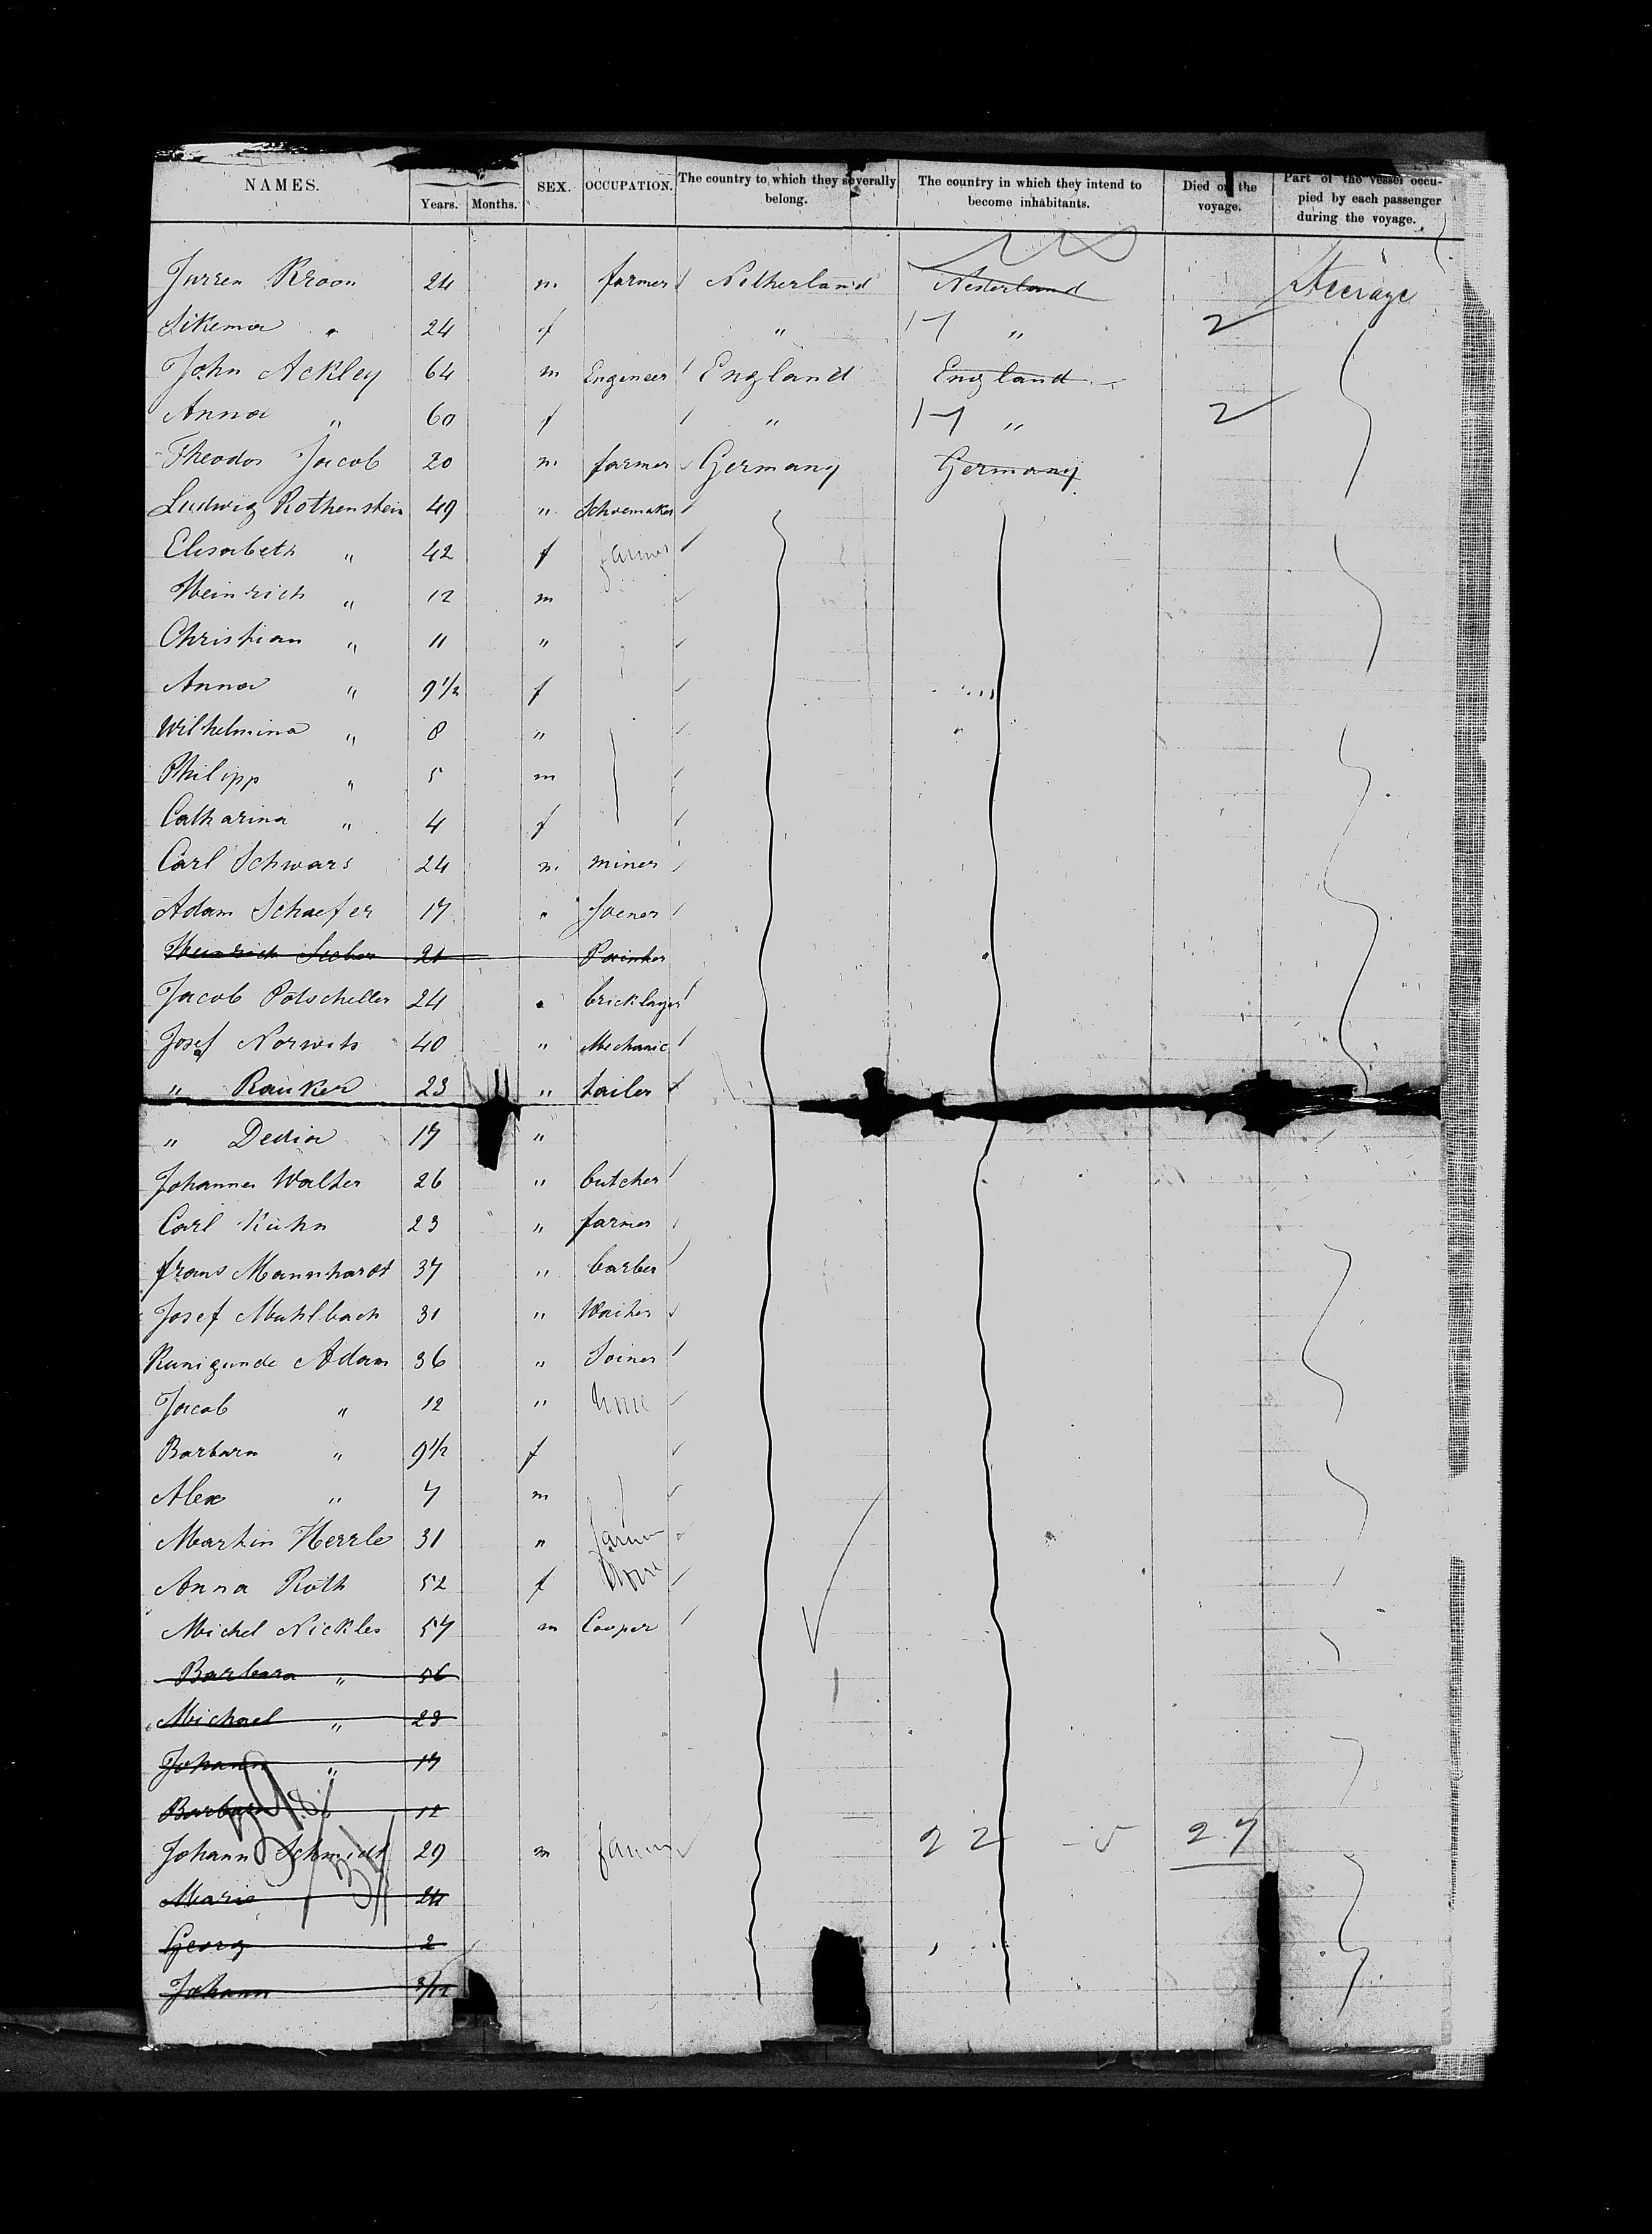 NAMES. Years. Months. SEX. OCCUPATION. The country to which they severally belong. The country in which they intend to become inhabitants. Died on the voyage. Part of the vessel occupied by each passenger during the voyage.
Jurren Kroon 24 m farmer Netherland Nederland Steerage
Sikema " 24 f " 17 " 2
John Ackley 64 m Engineer England England
Anna " 60 f " 17 " 2
Theodor Jacob 20 m farmer Germany Germany
Ludwig Rothenstein 49 " Schoemaker
Elisabeth " 42 f farmer
Heinrich " 12 m
Christian " 11 "
Anna " 9 1/2 f
Wilhelmina " 8 "
Philipp " 5 m
Catharina " 4 f
Carl Schwars 24 m miner
Adam Schaefer 17 " Joener
Heinrich 21
Jacob Potscheller 24 " bricklayer
Josef Norwits 40 " Mechanic
" Rauker 23 " tailer
" Dedia 17 "
Johannes Walter 26 " butcher
Carl Kuhn 23 " farmer
frans Mannhardt 37 " barber
Josef Muhlbach 31 " Waiter
Kunigunde Adam 36 " Joiner
Jacob " 12 " none
Barbara " 9 1/2 f
Alex " 7 m
Martin Herrle 31 " farmer
Anna Roth 52 f none
Michel Nickles 57 m Cooper
Barbara " 56
Michael " 23
Johann " 17
Barbara " 12
Johann Schmidt 29 m farmer 22 27
Marie 24
Georg 2
Johann 3/12